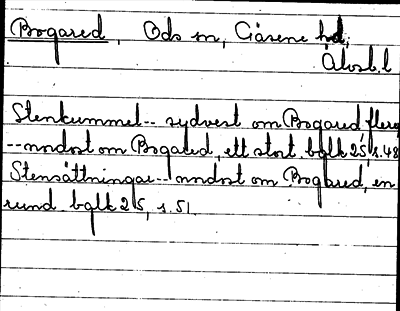 Bogared, Ods sn, Gäsene hd,
Älvsb.l
Stenkummel-- sydvest om Bogared flera
--nordost om Bogared, ett stort. bglk 25, s.48
Stensättningar--nordost om Bogared, en
rund bglk 25, s.51.